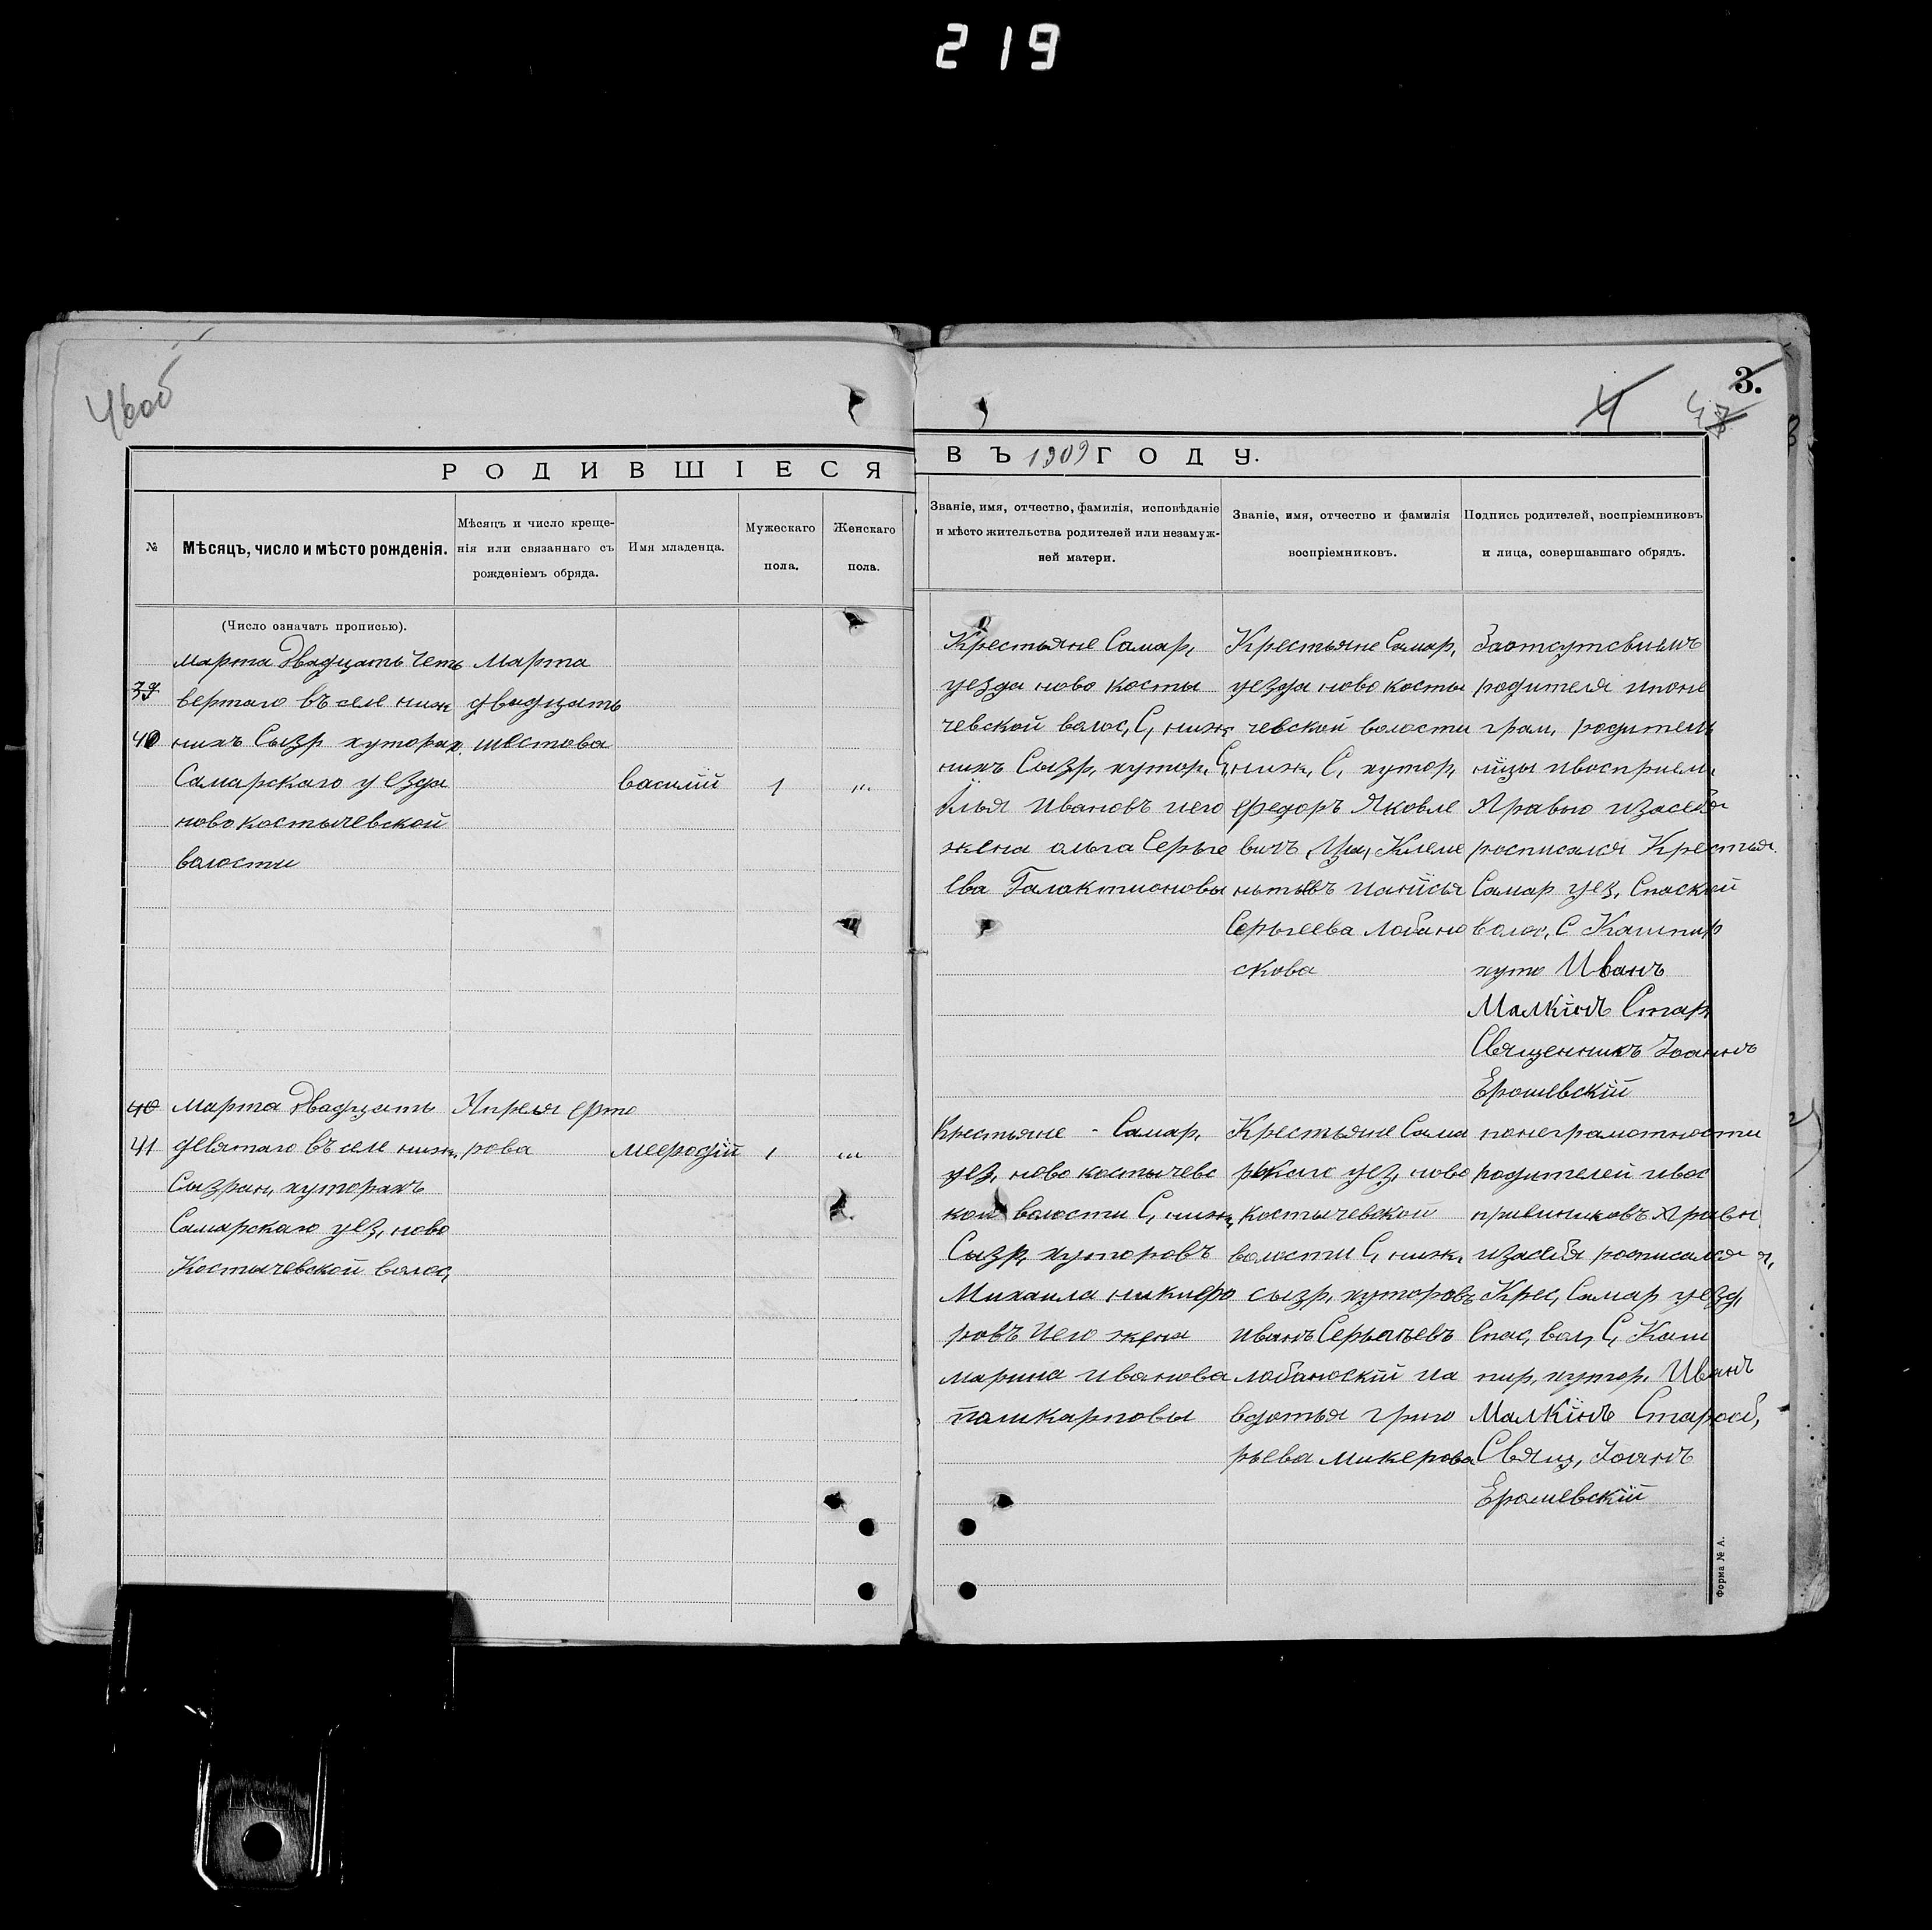 219
46об
4
3.
РОДИВШІЕСЯ
ВЪ 1909 ГОДУ.
№
Мѣсяцъ, число и мѣсто рожденія.
Мѣсяцъ и число креще-
нія или связаннаго съ
рожденіемъ обряда.
Имя младенца.
Мужескаго
пола.
Женскаго
пола.
Званіе, имя, отчество, фамилія, исповѣданіе
и мѣсто жительства родителей или незамуж-
ней матери.
Званіе, имя, отчество и фамилія
воспріемниковъ.
Подпись родителей, воспріемниковъ
и лица, совершавшаго обрядъ.
(Число означать прописью).
39
40
марта Двадцать четь
вертаго въ селе ниж
нихъ Сызр хуторах.
Самарскаго уезда
ново костычевской
волости
Марта
двадцать
шестова
василій
1
"
Крестьяне Самар,
уезда ново косты
чевской волос, С, ниж,
нихъ Сызр, хутор, С,
Илья Ивановъ иего
жена ольга Серьге
ева Галактионовы
Крестьяне Самар,
уезда ново косты
чевской волости
ниж, С, хутор,
федоръ Яковле
вичъ, Клеме
нтьевъ
Серьгеева Лобано
скова
Заотсутсвиемъ
родителя ипоне
грам, родитель
ницы ивосприем,
Яравно изасебя
росписался Крестья.
Самар уез, Спаской
волос, С Кашпир
хуто Иванъ
Малкінъ Стар
Священникъ Іоаннъ
Ерошевскій
40
41
Марта Двадцать
девятаго въ селе ниж,
Сызран, хуторахъ
Самарскаго уез, ново
Костычевской волос,
Апреля фто
рова
мефодій
1
"
Крестьяне - Самар,
уез, ново костычевс
кой волости С, ниж,
Сызр, хуторовъ
Михаила никифо
ровъ Иего жена
марина иванова
поликарповы
Крестьяне Сама
рскаго уез, ново
костычевской
волости С, ниж,
сызр, хуторовъ
иванъ Серьгеевъ
лобаноскій иа
вдотья григо
рьева микерова
понеграмотности
родителей ивос
приемниковъ Яравн
изасебя росписался
Крес, Самар уезд,
Спас, вол, С, Каш
пир, хутор, Иванъ
Малкінъ Старооб,
Свящ, Іоанъ
Ерошевскій
Форма № А.